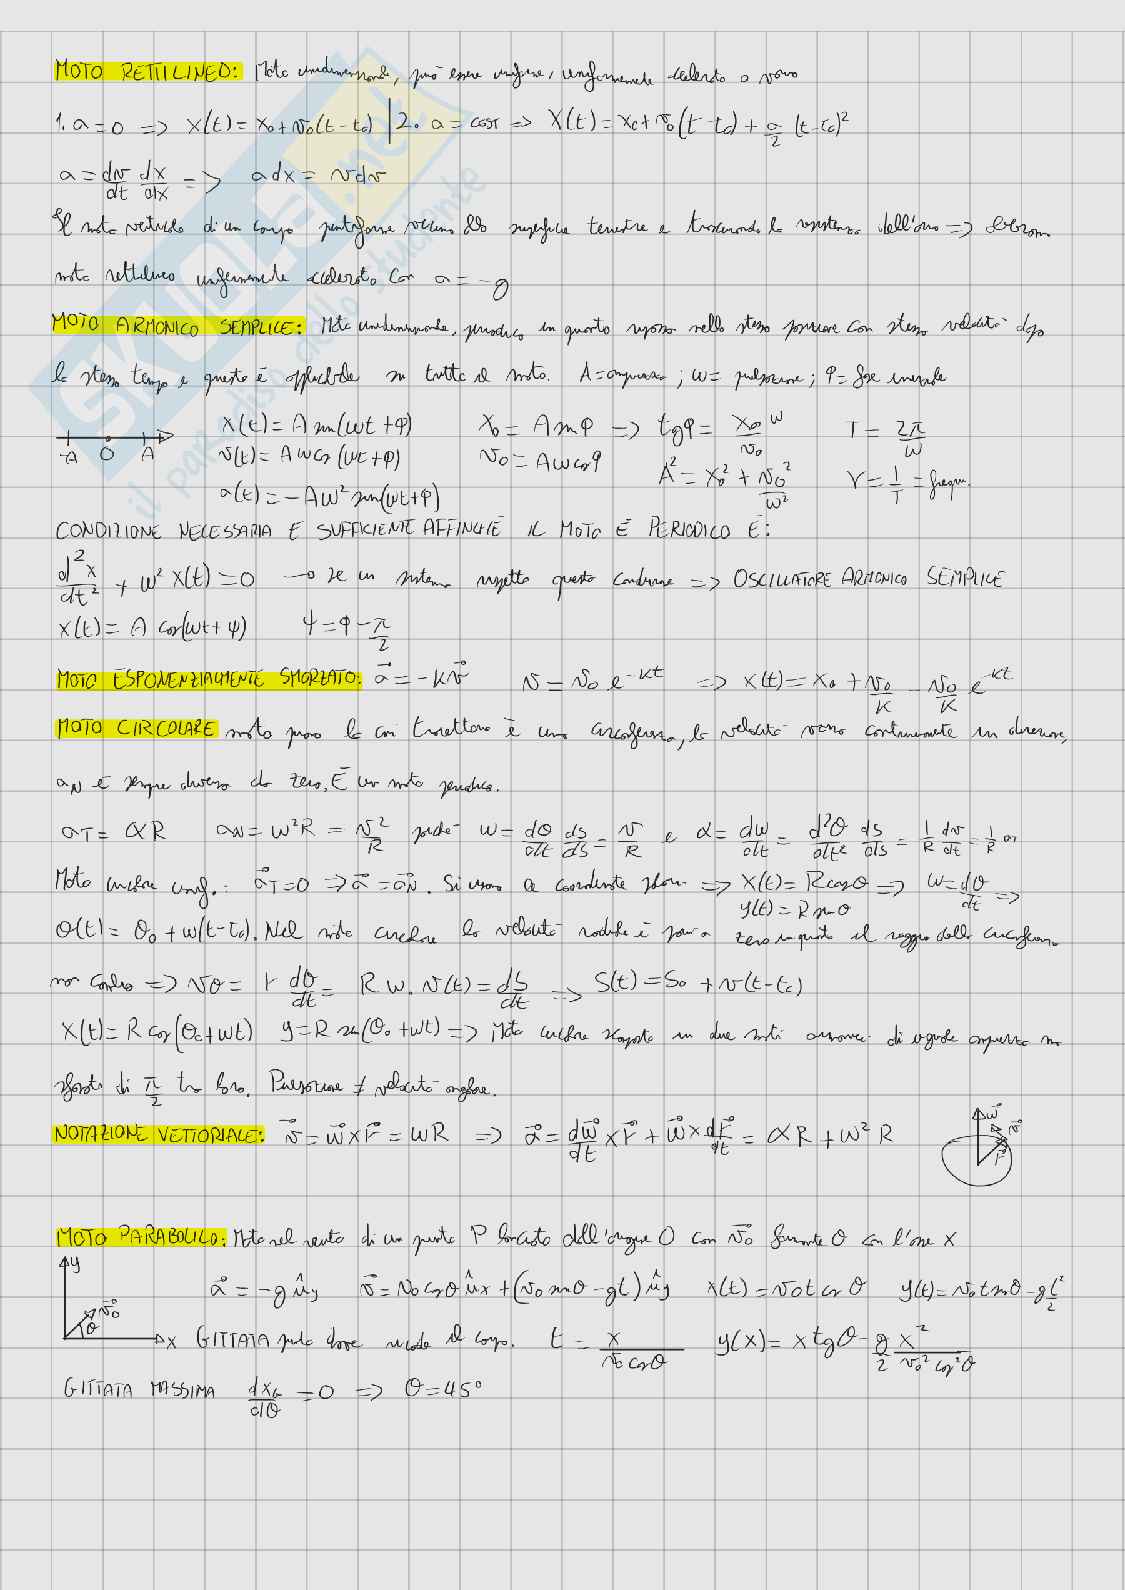 MOTO RETTILINEO: Moto unidimensionale, può essere uniforme, uniformemente accelerato o vario
1. a = 0 => x(t) = x₀ + v₀(t - t₀) | 2. a = cost => x(t) = x₀ + v₀(t - t₀) + a/2 (t - t₀)²
a = dv/dt dx/dx => a dx = v dv
Il moto verticale di un corpo puntiforme vicino alla superficie terrestre e trascurando la resistenza dell'aria =>
moto rettilineo uniformemente accelerato con a = -g
MOTO ARMONICO SEMPLICE: Moto unidimensionale, periodico in quanto ripassa nella stessa posizione con stessa velocità dopo
lo stesso tempo e questo è applicabile su tutto il moto. A = ampiezza; ω = pulsazione; φ = fase iniziale
x(t) = A sin(ωt + φ) x₀ = A sin φ => tgφ = x₀ω/v₀ T = 2π/ω
-A O A v(t) = Aω cos(ωt + φ) v₀ = Aω cosφ A² = x₀² + v₀²/ω² ν = 1/T = frequ.
a(t) = -Aω² sin(ωt + φ)
CONDIZIONE NECESSARIA E SUFFICIENTE AFFINCHÉ IL MOTO È PERIODICO È:
d²x/dt² + ω² x(t) = 0 → se un sistema rispetta questa condizione => OSCILLATORE ARMONICO SEMPLICE
x(t) = A cos(ωt + ψ) ψ = φ - π/2
MOTO ESPONENZIALMENTE SMORZATO: a⃗ = -kv⃗ v = v₀ e^-kt => x(t) = x₀ + v₀/k - v₀/k e^-kt
MOTO CIRCOLARE moto piano la cui traiettoria è una circonferenza, la velocità varia continuamente in direzione,
aN è sempre diversa da zero. È un moto periodico.
aT = αR aN = ω²R = v²/R poiché ω = dθ/dt ds/ds = v/R e α = dω/dt = d²θ/dt² ds/ds = 1/R dv/dt = 1/R aT
Moto circolare unif.: a⃗T = 0 => a⃗ = a⃗N. Si usano le coordinate polari => x(t) = R cosθ => ω = dθ/dt =>
y(t) = R sin θ
θ(t) = θ₀ + ω(t - t₀). Nel moto circolare la velocità radiale è pari a zero in quanto il raggio della circonferenza
non cambia => vθ = r dθ/dt = R ω. v(t) = dS/dt => S(t) = S₀ + v(t - t₀)
x(t) = R cos(θ₀ + ωt) y = R sin(θ₀ + ωt) => Moto circolare scomposto in due moti armonici di uguale ampiezza ma
sfasati di π/2 tra loro. Pulsazione ≠ velocità angolare.
NOTAZIONE VETTORIALE: v⃗ = ω⃗ x r⃗ = ωR => a⃗ = dω⃗/dt x r⃗ + ω⃗ x dr⃗/dt = αR + ω² R
ω⃗ v⃗ r⃗
MOTO PARABOLICO: Moto nel vuoto di un punto P lanciato dall'origine O con v⃗₀ formante θ con l'asse x
y a⃗ = -g ûy v⃗ = v₀ cosθ ûx + (v₀ sinθ - gt) ûy x(t) = v₀ t cosθ y(t) = v₀ t sinθ - g t²/2
v⃗₀ θ x GITTATA punto dove ricade il corpo. t = x/v₀ cosθ y(x) = x tgθ - g/2 x²/v₀² cos²θ
GITTATA MASSIMA dxG/dθ = 0 => θ = 45°
SKUOLA.net
il paradiso dello studente